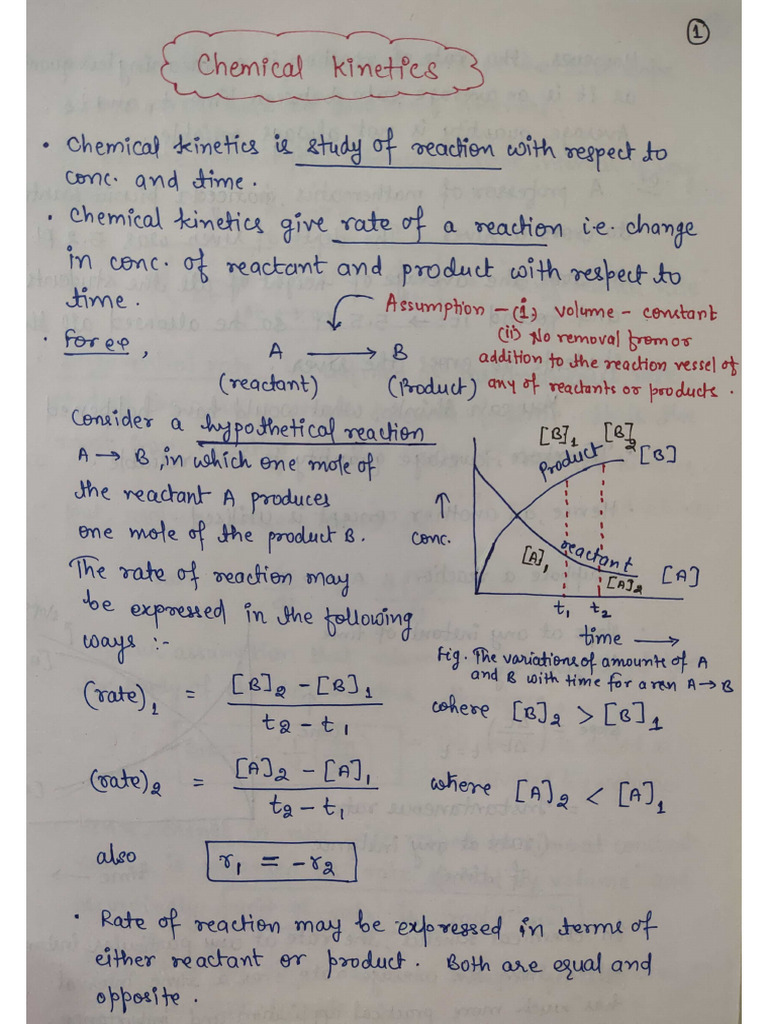 1
Chemical Kinetics
• Chemical kinetics is study of reaction with respect to
conc. and time.
• Chemical kinetics give rate of a reaction i.e. change
in conc. of reactant and product with respect to
time.
Assumption - (i) volume - constant
(ii) No removal from or
addition to the reaction vessel of
any of reactants or products.
• For eg,
A ⟶ B
(reactant) (Product)
Consider a hypothetical reaction
A → B, in which one mole of
the reactant A produces
one mole of the product B.
The rate of reaction may
be expressed in the following
ways :-
[B]₁ [B]₂
product [B]
↑
conc.
[A]₁ reactant
[A]₂ [A]
t₁ t₂
time ⟶
Fig. The variations of amounts of A
and B with time for a rxn A → B
(rate)₁ = [B]₂ - [B]₁ / t₂ - t₁ where [B]₂ > [B]₁
(rate)₂ = [A]₂ - [A]₁ / t₂ - t₁ where [A]₂ < [A]₁
also r₁ = -r₂
• Rate of reaction may be expressed in terms of
either reactant or product. Both are equal and
opposite.